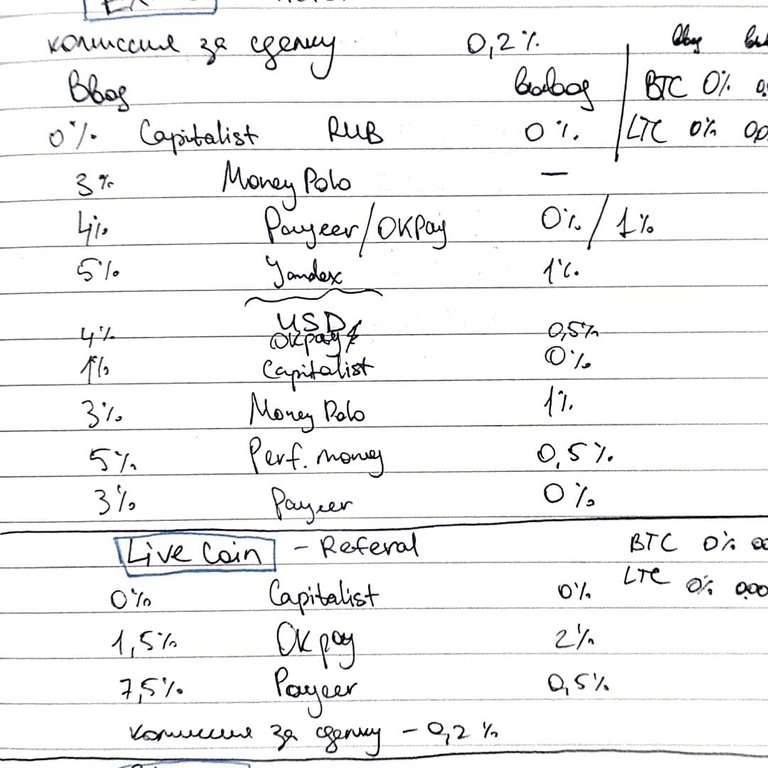 комиссия за сделку 0,2%
Ввод вывод BTC 0%
0% Capitalist RUB 0% LTC 0%
3% Money Polo —
4% Payeer/OKPay 0%/1%
5% Yandex 1%
USD
4% OKpay 0,5%
1% Capitalist 0%
3% Money Polo 1%
5% Perf. money 0,5%
3% Payeer 0%
Live Coin - Referal BTC 0%
0% Capitalist 0% LTC 0%
1,5% OKpay 2%
7,5% Payeer 0,5%
комиссия за сделку - 0,2%